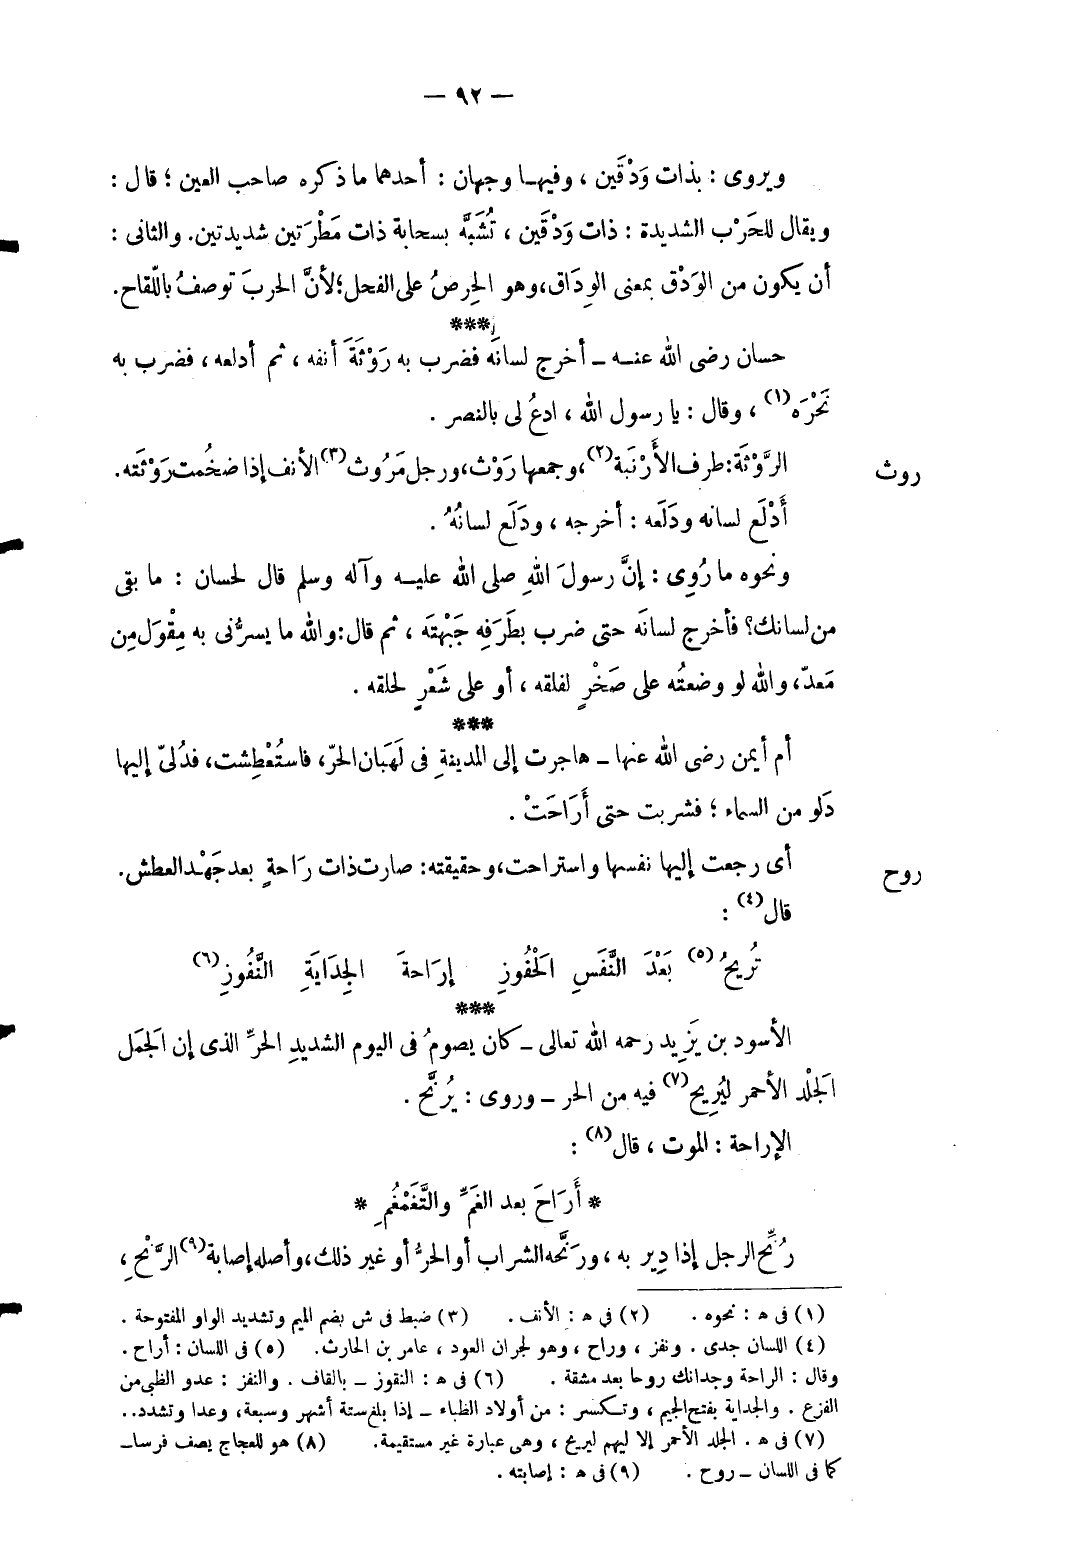 — ٩٢ —
ويروى : بذات وَدْقَين ، وفيهـا وجهان : أحدهما ما ذكره صاحب العين ؛ قال :
ويقال للحَرْب الشديدة : ذات وَدْقَين ، تُشَبَّه بسحابة ذات مَطْرَتين شديدتين. والثانى :
أن يكون من الوَدْق بمعنى الوِدَاق،وهو الحِرصُ على الفحل؛لأنَّ الحربَ توصفُ باللّقاح.
***
حسان رضى الله عنـه ـ أخرج لسانَه فضرب به رَوْثَةَ أنفه ، ثم أدلعه ، فضرب به
نَحْرَه(١) ، وقال : يا رسول الله ، ادعُ لى بالنصر .
روث
الرَّوْثَة:طرف الأَرْنَبة(٢)،وجمعها رَوْث،ورجل مَرُوث(٣)الأنف إذا ضخُمت رَوْثَته.
أَدْلَع لسانه ودَلَعه : أخرجه ، ودَلَع لسانُهُ .
ونحوه ما رُوِى : إنَّ رسولَ اللهِ صلى الله عليـه وآله وسلم قال لحسان : ما بقى
من لسانك؟ فأخرج لسانَه حتى ضرب بطَرَفِه جَبْهتَه ، ثم قال:والله ما يسرُّنى به مِقْوَل مِن
مَعدّ، والله لو وضعتُه على صَخْرٍ لفلقه ، أو على شَعْرٍ لحلقه .
***
أم أيمن رضى الله عنها ـ هاجرت إلى المدينةِ فى لَهَبان الحرّ، فاستُعْطِشت، فدُلىّ إليها
دَلو من السماء ؛ فشربت حتى أَرَاحَتْ .
روح
أى رجعت إليها نفسها واستراحت،وحقيقته: صارت ذات رَاحةٍ بعد جَهْد العطش.
قال(٤) :
تُريحُ(٥) بَعْدَ النَّفَسِ الَحْفُوزِ إرَاحةَ الجِدَايَةِ النَّفُوزِ(٦)
***
الأسود بن يَزِيد رحمه الله تعالى ـ كان يصومُ فى اليوم الشديدِ الحرِّ الذى إن الَجمَل
الَجلْد الأحمر ليُرِيح(٧) فيه من الحر ـ وروى : يُرنَّح .
الإراحة : الموت ، قال(٨) :
* أَرَاحَ بعد الغَمِّ والتَّغَمْغُمِ *
رُنِّح الرجل إذا دِير به ، ورَنَّحه الشراب أو الحرُّ أو غير ذلك،وأصله إصابة(٩)الرَّنْحِ،
(١) فى ه : نحوه . (٢) فى ه : الأنف . (٣) ضبط فى ش بضم الميم وتشديد الواو المفتوحة .
(٤) اللسان جدى . ونفز ، وراح ، وهو لجران العود ، عامر بن الحارث. (٥) فى اللسان : أراح .
وقال : الراحة وجدانك روحا بعد مشقة . (٦) فى ه : النقوز ـ بالقاف . والنفز : عدو الظبى من
الفزع . والجداية بفتح الجيم ، وتـكسر : من أولاد الظباء ـ إذا بلغ ستة أشهر وسبعة، وعدا وتشدد..
(٧) فى ه . الجلد الأحمر إلا ليهم ليريح ، وهى عبارة غير مستقيمة. (٨) هو للعجاج يصف فرسا ـ
كما فى اللسان ـ روح . (٩) فى ه : إصابته .